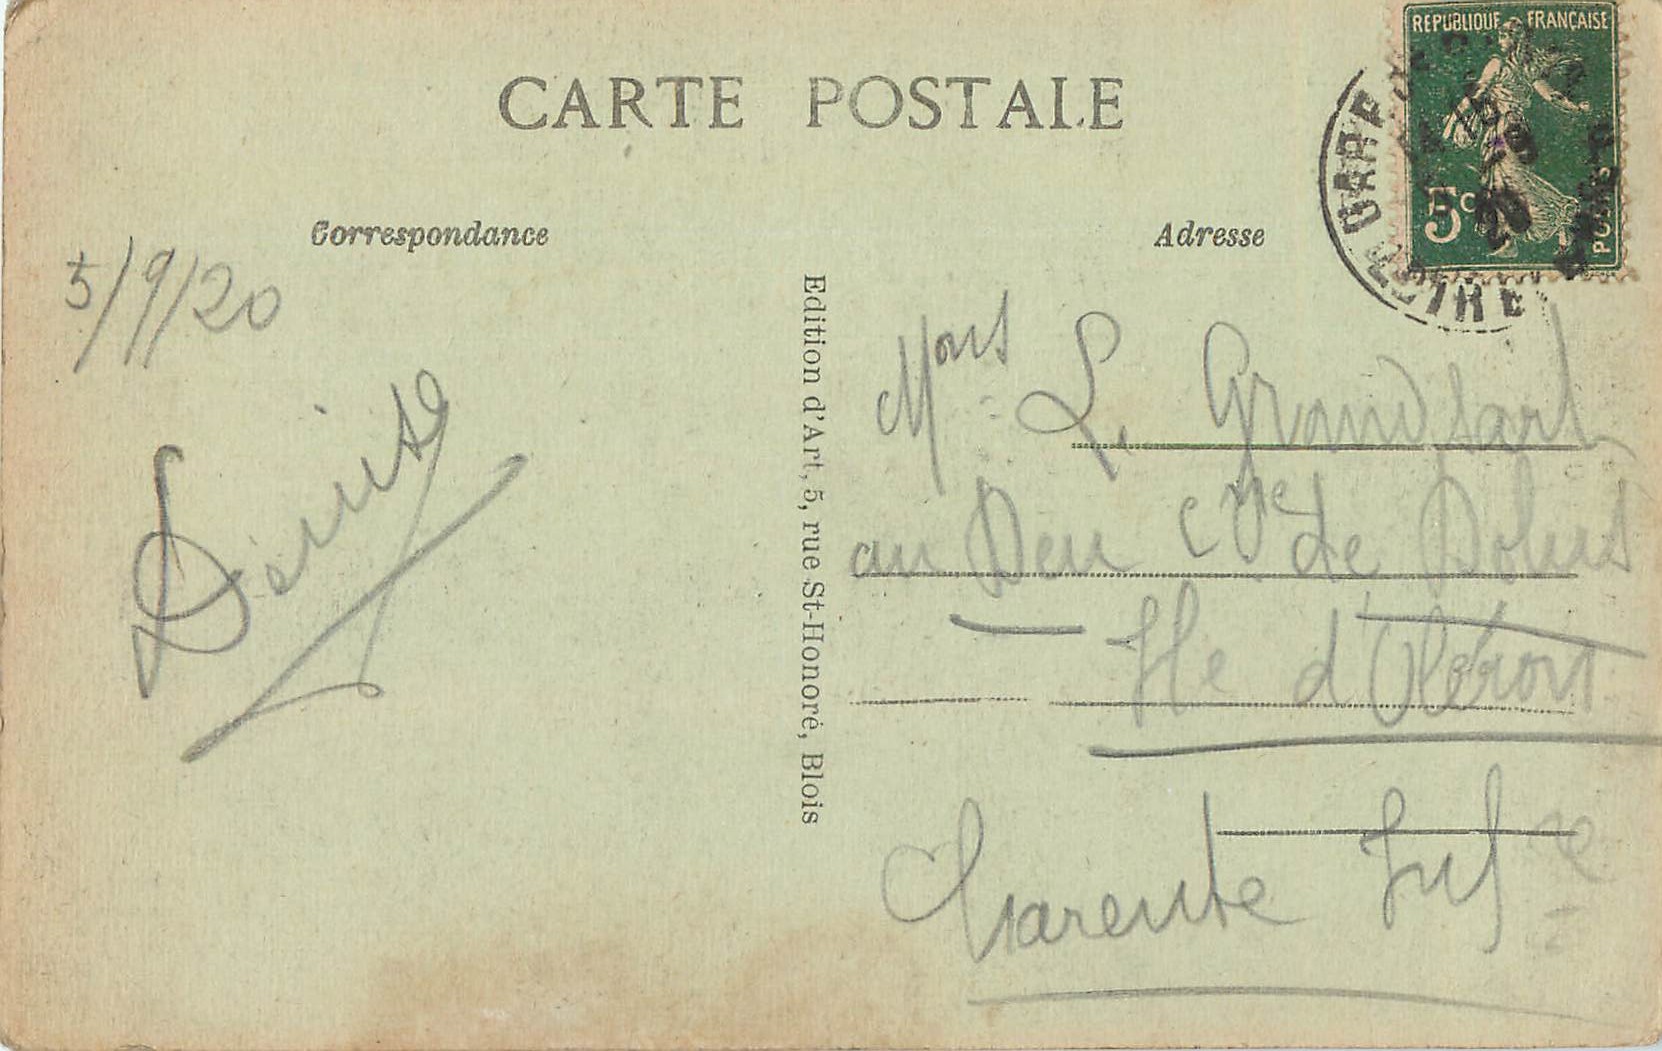 CARTE POSTALE
REPUBLIQUE FRANÇAISE
5c
POSTES
GARE
20
Correspondance
Adresse
5/9/20
Denise
Edition d'Art, 5, rue St-Honoré, Blois
Mons L. Grandsart
au Deu Cne de Dolus
Ile d'Oléron
Charente Infre